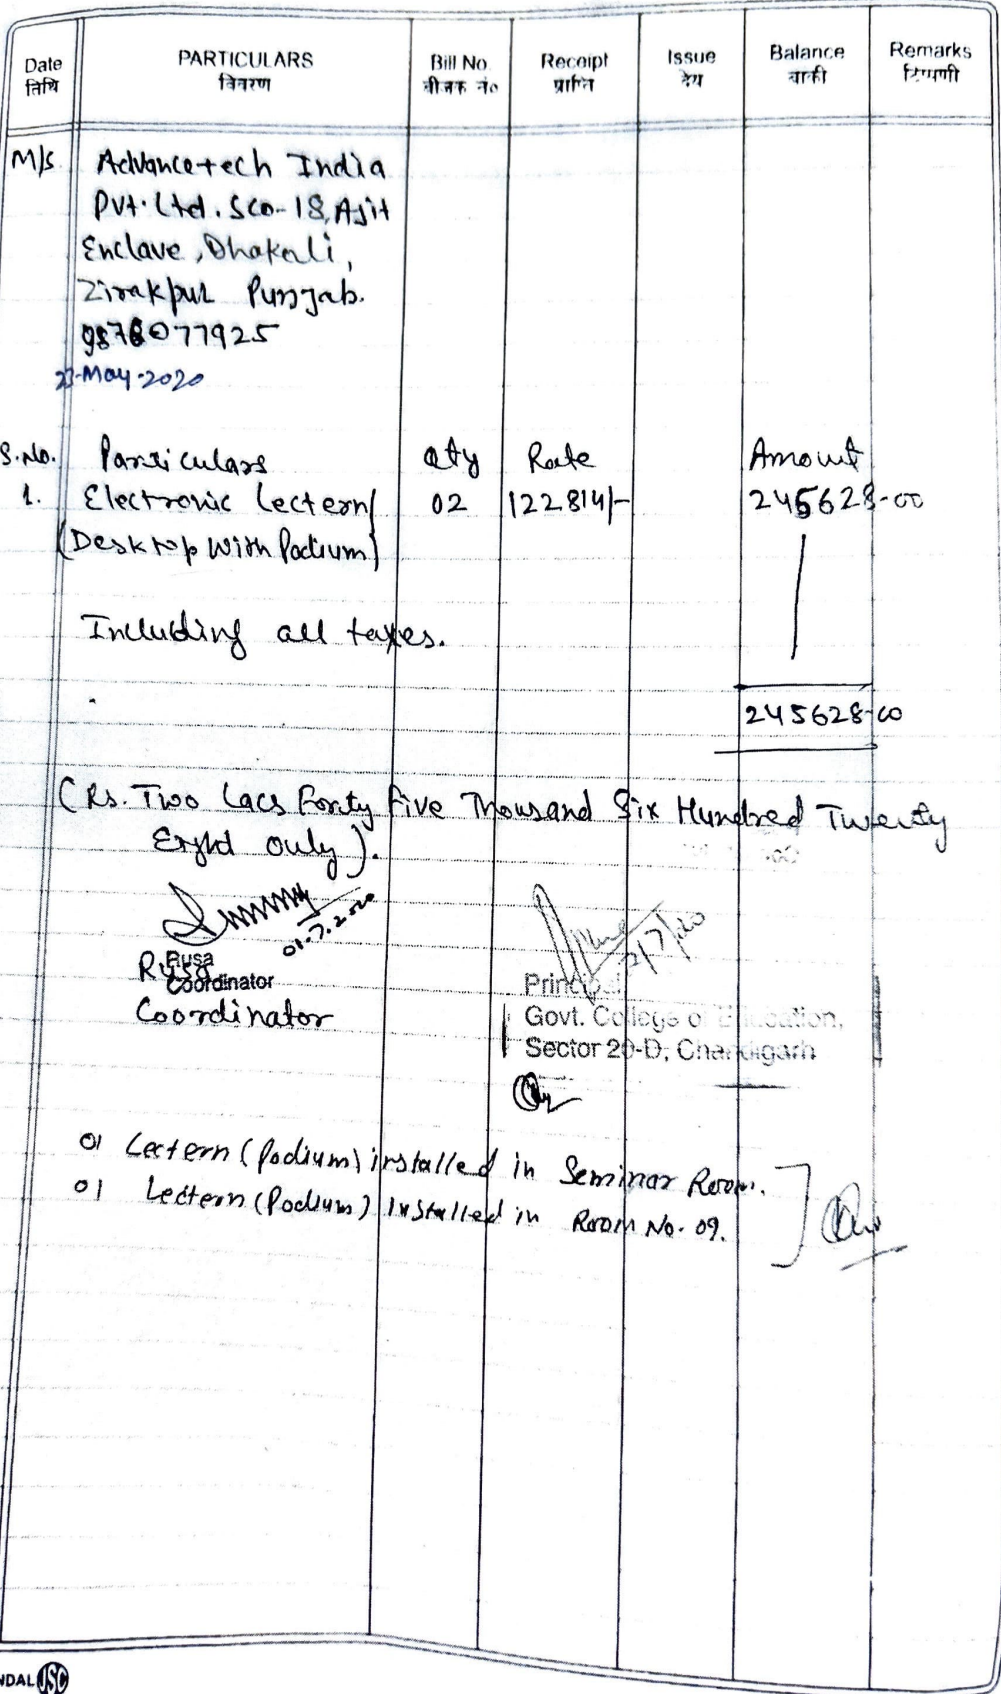 Date PARTICULARS Bill No. Receipt Issue Balance Remarks
तिथि विवरण बीजक नं० प्राप्ति देय बाकी टिप्पणी
M/s. Advancetech India
Pvt. Ltd. SCO-18, Ajit
Enclave, Dhakoli,
Zirakpur Punjab.
9876077925
23-May-2020
S.No. Particulars Qty Rate Amount
1. Electronic Lectern/ 02 122814/- 245628-00
(Desktop With Podium)
Including all taxes.
245628-00
(Rs. Two Lacs Forty Five Thousand Six Hundred Twenty
Eight only).
01.7.2020
2/7/20
Rusa
Coordinator
Rusa
Coordinator
Principal
Govt. College of Education,
Sector 20-D, Chandigarh
01 Lectern (Podium) installed in Seminar Room.
01 Lectern (Podium) Installed in Room No. 09.
NDAL JSC